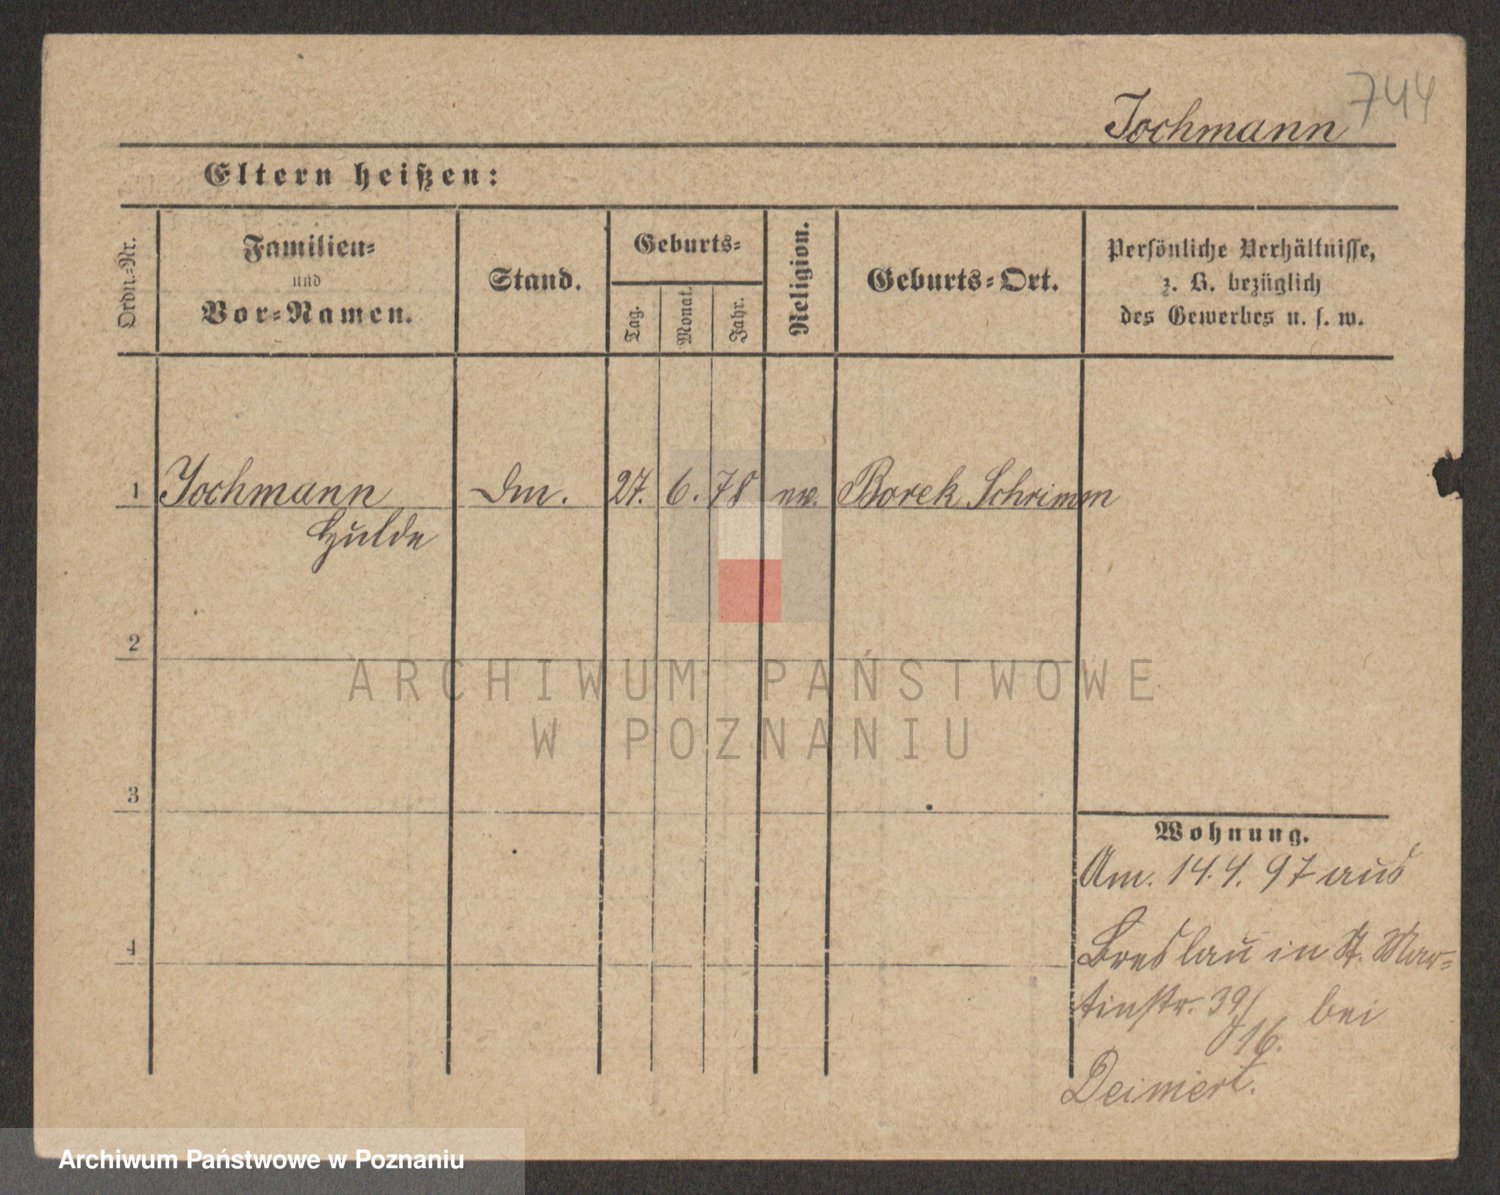 744
Jochmann
Eltern heißen:
Ordn.-Nr.
Familien-
und
Vor-Namen.
Stand.
Geburts-
Tag.
Monat.
Jahr.
Religion.
Geburts-Ort.
Persönliche Verhältnisse,
z. B. bezüglich
des Gewerbes u. s. w.
1 Jochmann 27. 6. 78 ev. Borek Schrimm
Hulda
2
ARCHIWUM PAŃSTWOWE
W POZNANIU
3
Wohnung.
Am. 14.4.97 aus
4
Breslau in St. Mar-
tinstr. 39/ bei
16.
Archiwum Państwowe w Poznaniu